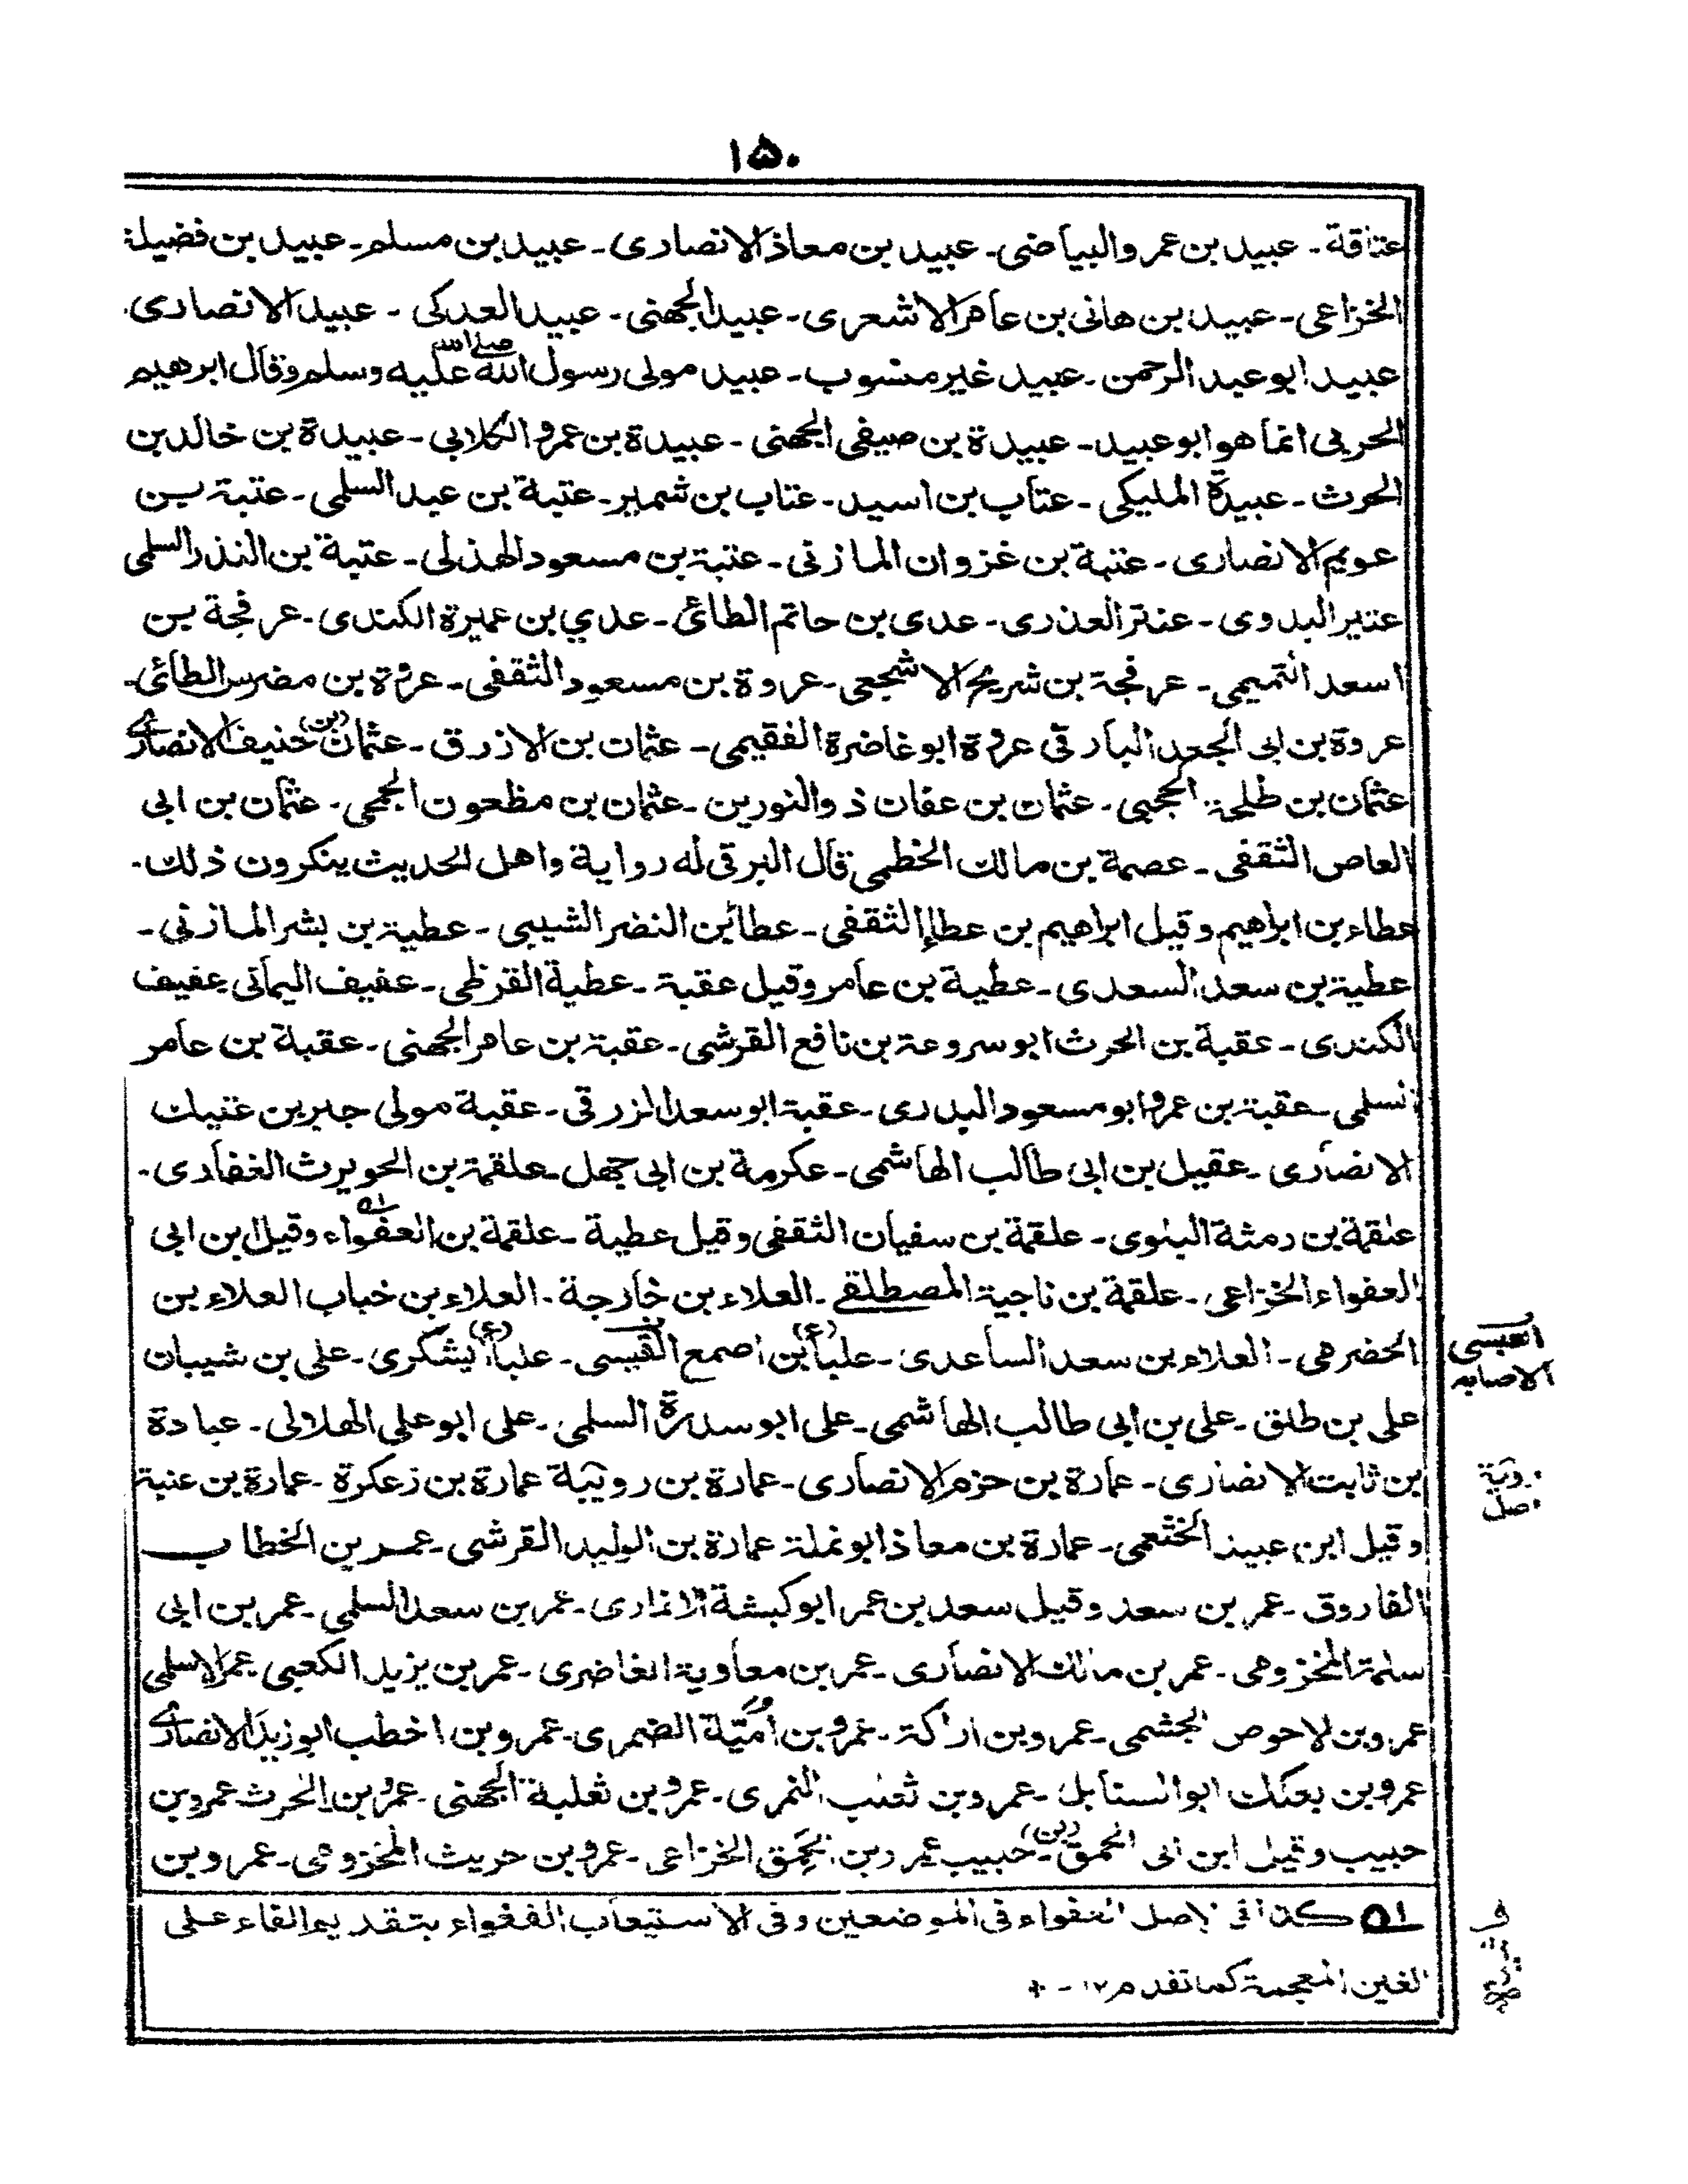 ۱۵۰
عتاقة - عبيد بن عمرو البياضى - عبيد بن معاذ الانصارى - عبيد بن مسلم - عبيد بن فضيلة
الخزاعى - عبيد بن هانى بن عامر الاشعرى - عبيد الجهنى - عبيد العدكى - عبيد الانصارى
عبيد ابو عبد الرحمن - عبيد غير منسوب - عبيد مولى رسول الله صلى الله عليه وسلم وقال ابرهيم
الحربى انما هو ابو عبيد - عبيدة بن صيفى الجهنى - عبيدة بن عمرو الكلابى - عبيدة بن خالد بن
الحرث - عبيدة المليكى - عتاب بن اسيد - عتاب بن شمير - عتبة بن عبد السلمى - عتبة بن
عويم الانصارى - عتبة بن غزوان المازنى - عتبة بن مسعود الهذلى - عتبة بن الندر السلمى
عتير البدوى - عنتر العذرى - عدى بن حاتم الطائى - عدي بن عميرة الكندى - عرفجة بن
اسعد التميمى - عرفجة بن شريح الاشجعى - عروة بن مسعود الثقفى - عروة بن مضرس الطائى -
عروة بن ابى الجعد البارقى عروة ابو غاضرة الفقيمى - عثمان بن الازرق - عثمان (بن) حنيف الانصارى
عثمان بن طلحة الحجبى - عثمان بن عفان ذو النورين - عثمان بن مظعون الجمحى - عثمان بن ابى
العاص الثقفى - عصمة بن مالك الخطمى قال البرقى له رواية واهل الحديث ينكرون ذلك -
عطاء بن ابراهيم وقيل ابراهيم بن عطاء الثقفى - عطا بن النضر الشيبى - عطية بن بشر المازنى -
عطية بن سعد السعدى - عطية بن عامر وقيل عقبة - عطية القرظى - عفيف اليمانى عفيف
الكندى - عقبة بن الحرث ابو سروعة بن نافع القرشى - عقبة بن عامر الجهنى - عقبة بن عامر
السلمى - عقبة بن عمرو ابو مسعود البدرى - عقبة ابو سعد الزرقى - عقبة مولى جبر بن عتيك
الانصارى - عقيل بن ابى طالب الهاشمى - عكرمة بن ابى جهل - علقمة بن الحويرث الغفارى -
علقمة بن رمثة البلوى - علقمة بن سفيان الثقفى وقيل عطية - علقمة بن العفواء ۵۱ وقيل ابن ابى
العفواء الخزاعى - علقمة بن ناجية المصطلقى - العلاء بن خارجة - العلاء بن خباب العلاء بن
الحضرمى - العلاء بن سعد الساعدى - علباء (ع) بن اصمع القيسى - علباء (ع) اليشكرى - على بن شيبان
العبسى
الاصابه
على بن طلق - على بن ابى طالب الهاشمى - على ابو سدرة السلمى - على ابو على الهلالى - عبادة
بن ثابت الانصارى - عمارة بن حزم الانصارى - عمارة بن رويبة عمارة بن زعكرة - عمارة بن عنبة
وقيل ابن عبيد الخثعمى - عمارة بن معاذ ابو نملة عمارة بن الوليد القرشى - عمر بن الخطاب
الفاروق - عمر بن سعد وقيل سعد بن عمر ابو كبشة الانمارى - عمر بن سعد السلمى - عمر بن ابى
سلمة المخزومى - عمر بن مالك الانصارى - عمر بن معاوية الغاضرى - عمر بن يزيد الكعبى عمر الاسلمى
عمرو بن لاحوص الجشمى - عمرو بن اراكة - عمرو بن اميّة الضمرى - عمرو بن اخطب ابو زيد الانصارى
عمرو بن بعكك ابو السنابل - عمرو بن تغلب النمرى - عمرو بن ثعلبة الجهنى - عمرو بن الحرث عمرو بن
حبيب وقيل ابن ابى (بن) حبيب عمرو بن الحمق الخزاعى - عمرو بن حريث المخزومى - عمرو بن
۵۱ كذا فى الاصل العفواء فى الموضعين وفى الاستيعاب الفغواء بتقديم الفاء على
الغين المعجمة كما تقدم ۱۲ - +